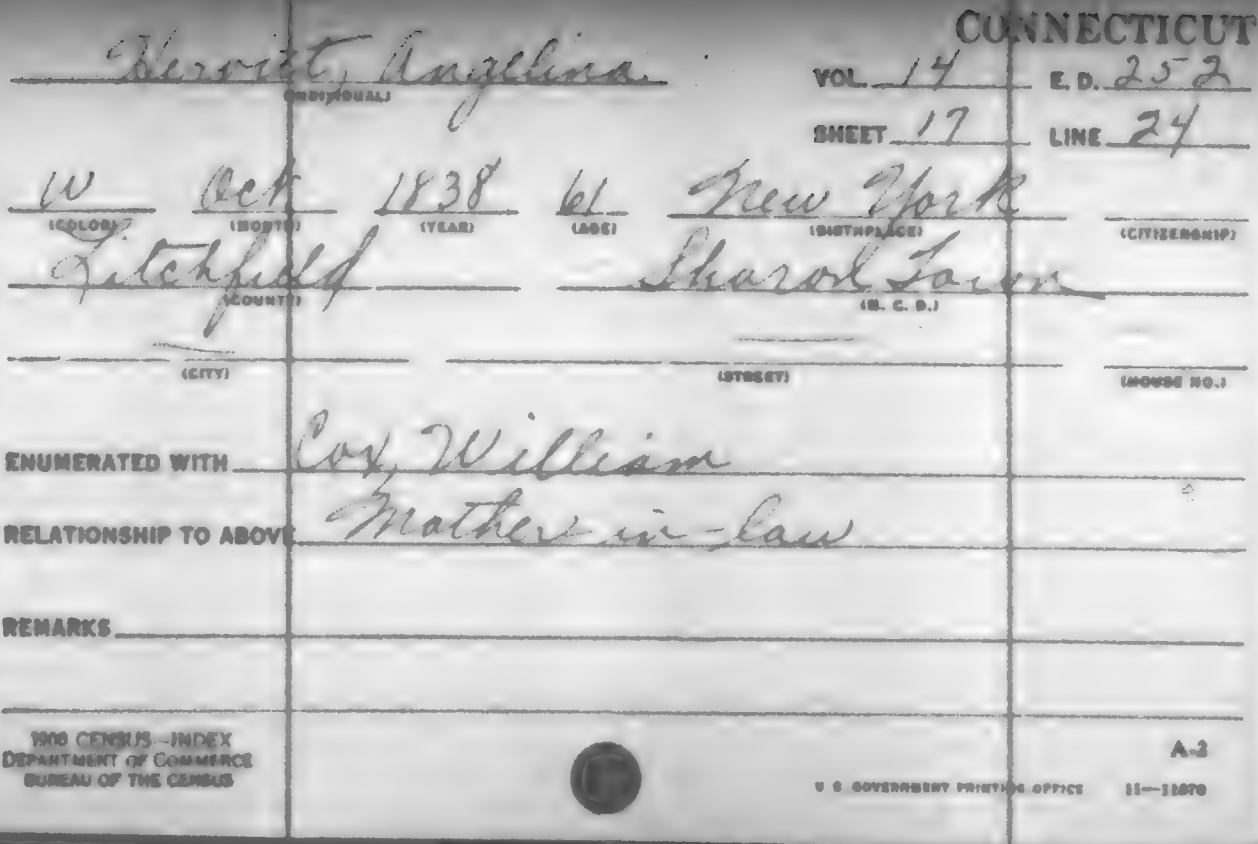 CONNECTICUT
Angelina
(INDIVIDUAL)
VOL. 14 E. D. 252
SHEET 17 LINE 24
W Oct 1838 61 New York
(COLOR) (MONTH) (YEAR) (AGE) (BIRTHPLACE) (CITIZENSHIP)
Litchfield Sharon Town
(COUNTY) (M. C. D.)
(CITY) (STREET) (HOUSE NO.)
ENUMERATED WITH Cox, William
RELATIONSHIP TO ABOVE Mother-in-law
REMARKS
1900 CENSUS—INDEX
DEPARTMENT OF COMMERCE
BUREAU OF THE CENSUS
A-2
U S GOVERNMENT PRINTING OFFICE 11—11870